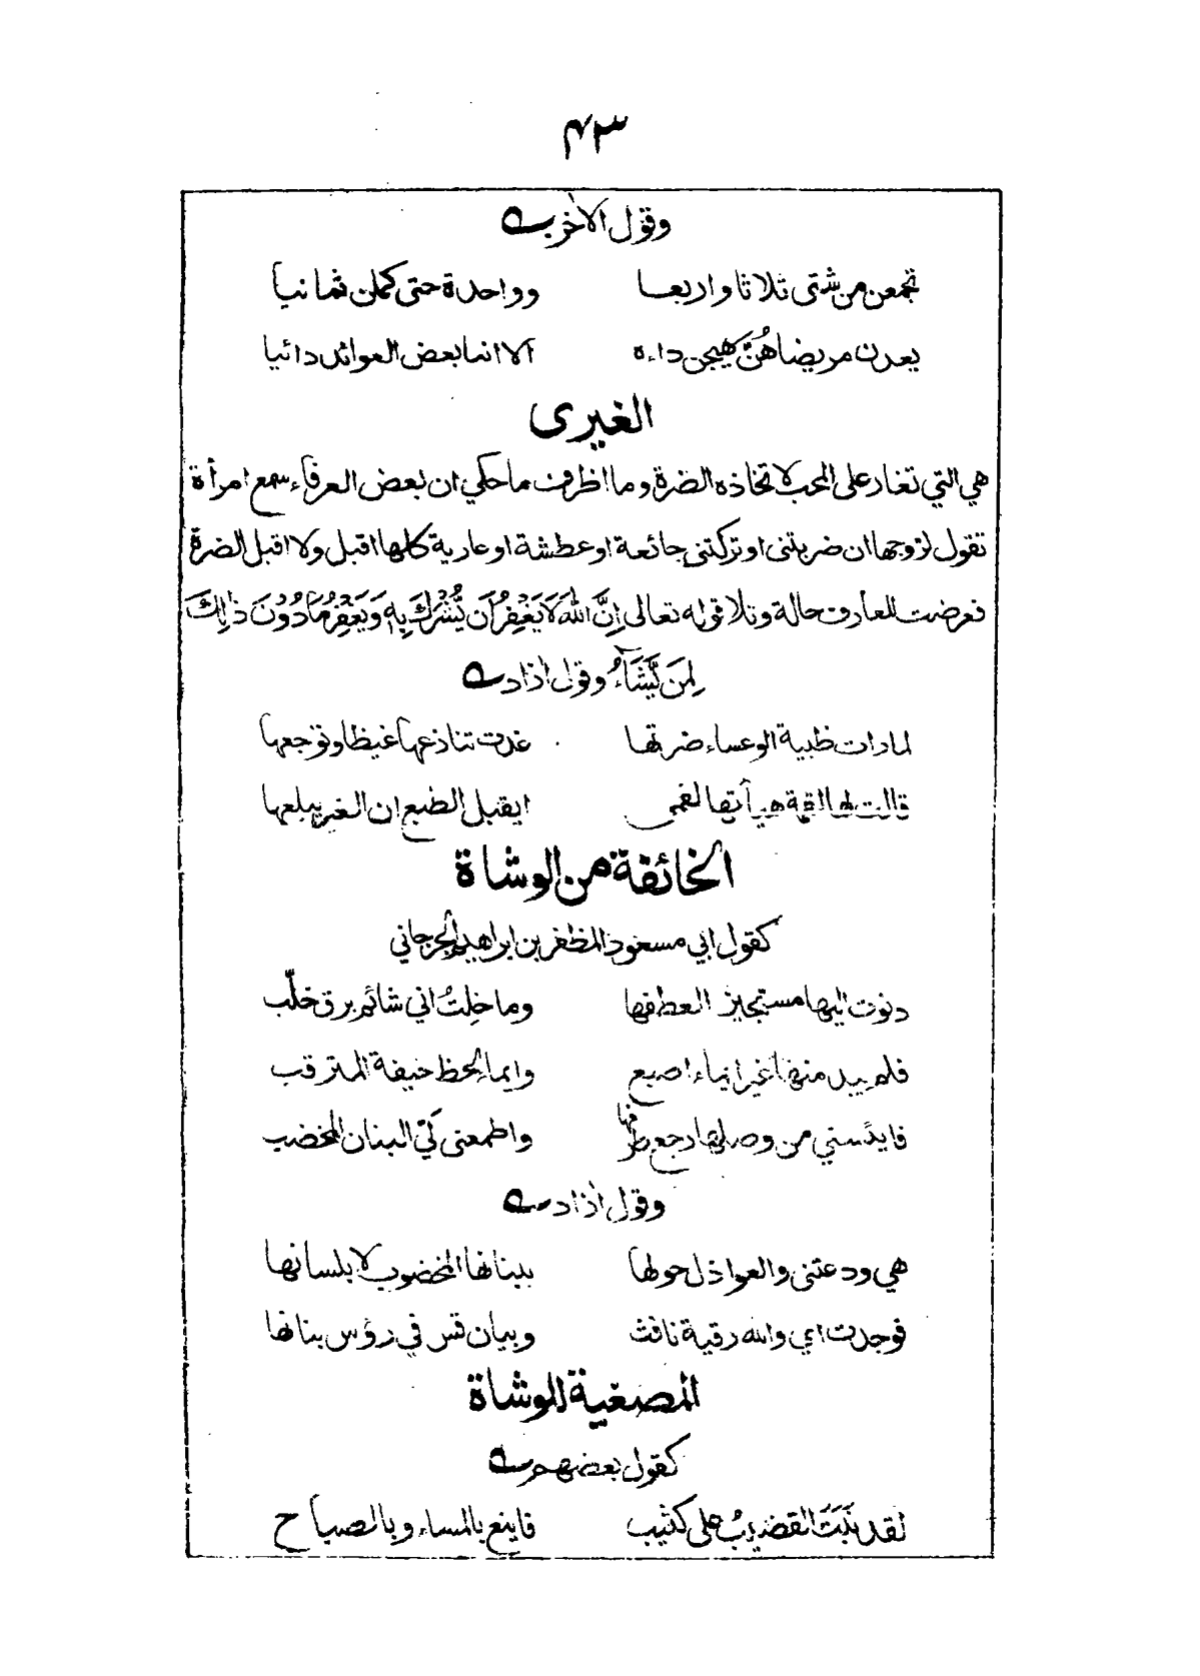 ۴۳
وقول الاخر
تجمعن من شتى ثلاثا واربعا وواحدة حتى كملن ثمانيا
يعدن مريضا هُنَّ هيجن داءه الا انما بعض العوائد دائيا
الغيرى
هي التي تغار على المحب لاتخاذه الضرة وما اظرف ما حكي ان بعض العرفاء سمع امرأة
تقول لزوجها ان ضربتنى او تركتنى جائعة او عطشة او عارية كلها اقبل ولا اقبل الضرة
فعرضت للعارف حالة وتلا قوله تعالى اِنَّ اللّٰهَ لَا يَغْفِرُ اَن يُّشْرَكَ بِهٖ وَيَغْفِرُ مَا دُوْنَ ذٰلِكَ
لِمَن يَّشَآءُ وقول ازاد
لما رات ظبية الوعساء ضرتها غدت تنازعها غيظا وتوجعها
قالت لها لقمة هيأتها لفمى ايقبل الطبع ان الغير يبلعها
الخائفة من الوشاة
كقول ابي مسعود المظفر بن ابراهيم الجرجاني
دنوت اليها مستجيزا لعطفها وما خِلتُ اني شائم برق خلّب
فلم يبد منها غير ايماء اصبع وايما لحظ خيفة المترقب
فايئسني من وصلها رجع طرفها واطمعنى كيّ البنان المخضب
وقول ازاد
هي ودعتنى والعواذل حولها ببنانها المخضوب لا بلسانها
فوجدت اي والله رقية نافث وبيان قس في رؤس بنانها
المصغية للوشاة
كقول بعضهم
لقد نَبَتَ القضيبُ على كثيب فاينع بالمساء وبالصباح